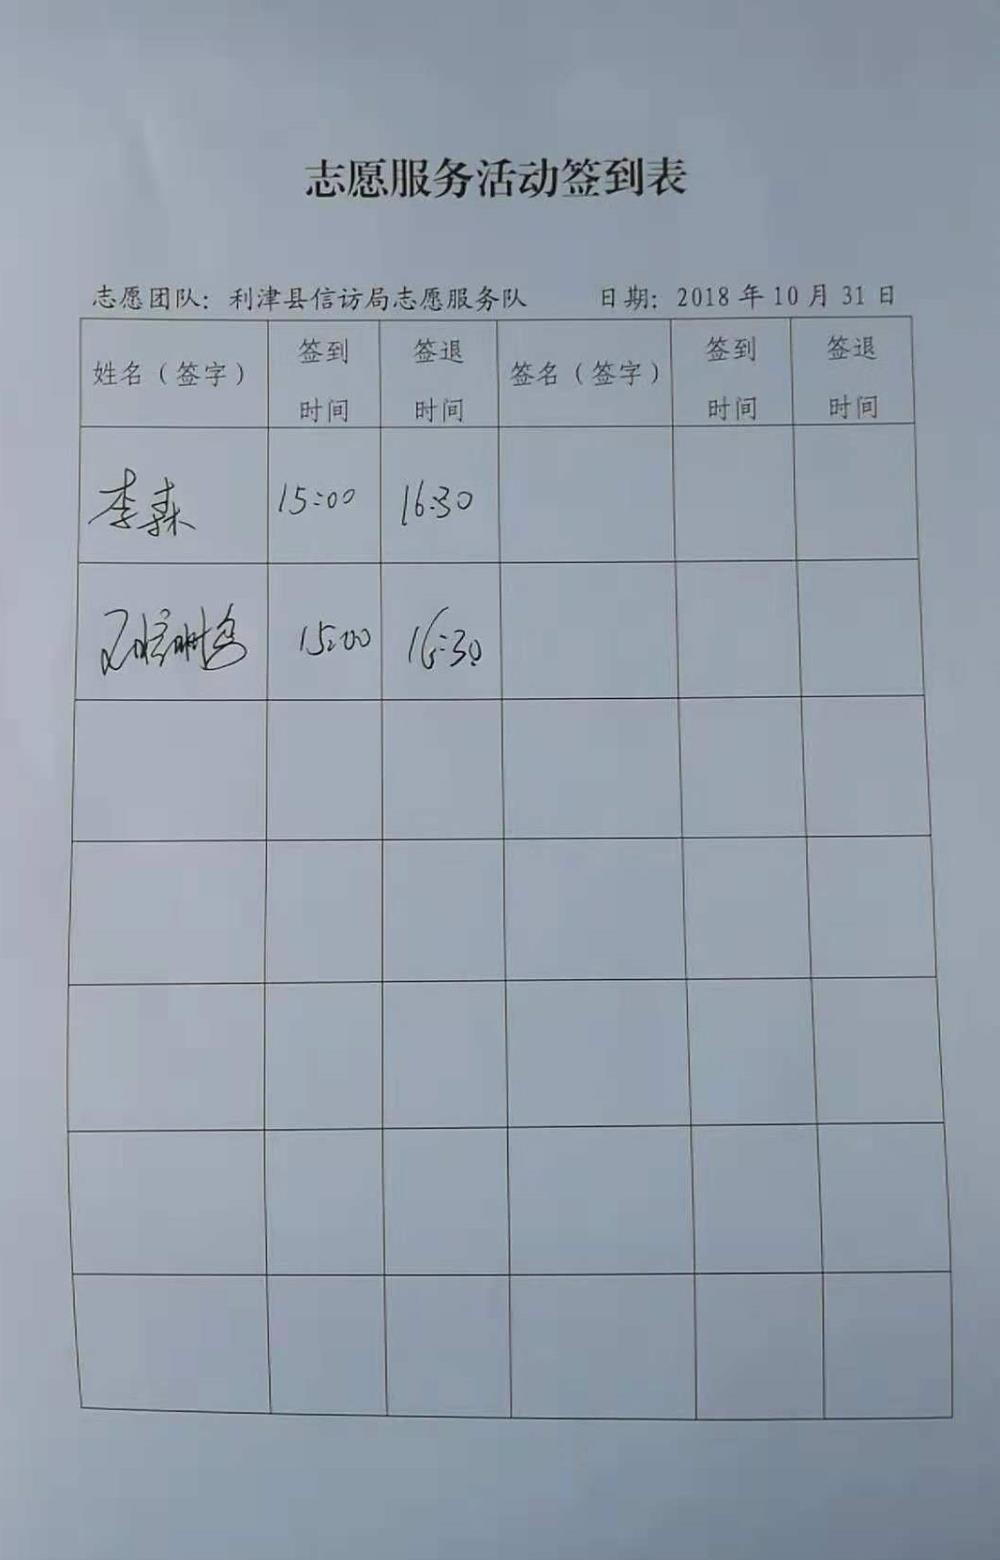 志愿服务活动签到表
志愿团队：利津县信访局志愿服务队 日期：2018 年 10 月 31 日
姓名（签字） 签到时间 签退时间 签名（签字） 签到时间 签退时间
李森 15:00 16:30
15:00 16:30